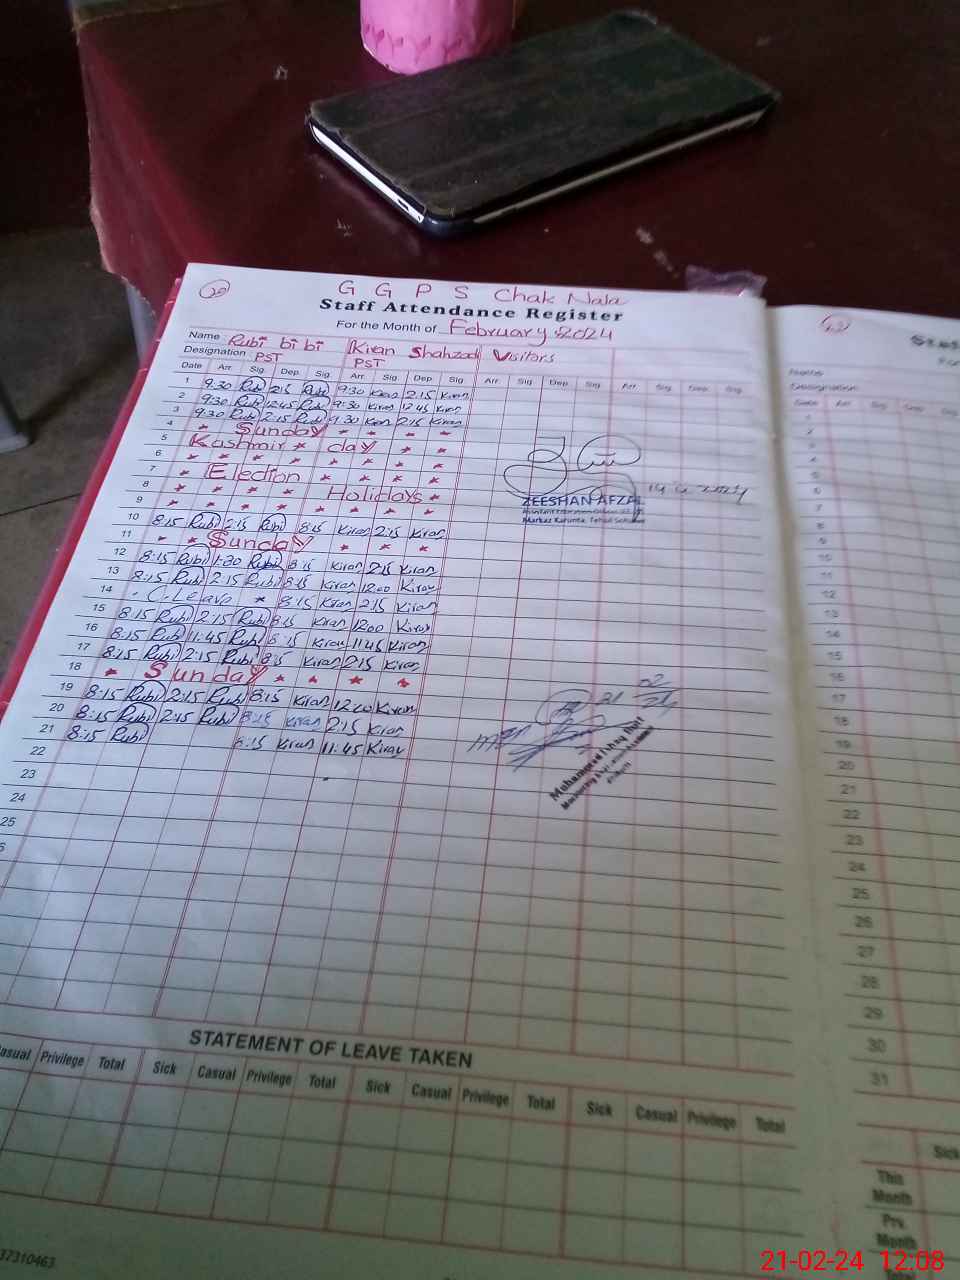 20
G G P S Chak Nala
Staff Attendance Register
For the Month of February 2024
Name Rubi bi bi Kiran Shahzad Visitors
Designation PST PST
Date Arr. Sig. Dep. Sig. Arr. Sig. Dep. Sig. Arr. Sig. Dep. Sig. Arr. Sig. Dep. Sig.
1 9:30 Rubi 2:15 Rubi 9:30 Kiran 2:15 Kiran
2 9:30 Rubi 12:45 Rubi 9:30 Kiran 12:45 Kiran
3 9:30 Rubi 2:15 Rubi 9:30 Kiran 2:15 Kiran
4 Sunday
5 Kashmir day
6
7 Election
8 Holidays
9
10 8:15 Rubi 2:15 Rubi 8:15 Kiran 2:15 Kiran
11 Sunday
12 8:15 Rubi 1:30 Rubi 8:15 Kiran 2:15 Kiran
13 8:15 Rubi 2:15 Rubi 8:15 Kiran 12:00 Kiran
14 C-Leave 8:15 Kiran 2:15 Kiran
15 8:15 Rubi 2:15 Rubi 8:15 Kiran 12:00 Kiran
16 8:15 Rubi 11:45 Rubi 8:15 Kiran 11:45 Kiran
17 8:15 Rubi 2:15 Rubi 8:15 Kiran 2:15 Kiran
18 Sunday
19 8:15 Rubi 2:15 Rubi 8:15 Kiran 12:20 Kiran
20 8:15 Rubi 2:15 Rubi 8:15 Kiran 2:15 Kiran
21 8:15 Rubi 8:15 Kiran 11:45 Kiran
22
23
24
25
ZEESHAN AFZAL
Markaz Karunta, Tehsil
21 02/24
STATEMENT OF LEAVE TAKEN
Casual Privilege Total Sick Casual Privilege Total Sick Casual Privilege Total Sick Casual Privilege Total
37310463
Name
Designation
Date Arr. Sig. Dep. Sig.
1
2
3
4
5
6
7
8
9
10
11
12
13
14
15
16
17
18
19
20
21
22
23
24
25
26
27
28
29
30
31
Sick
This Month
Prv. Month
21-02-24 12:08